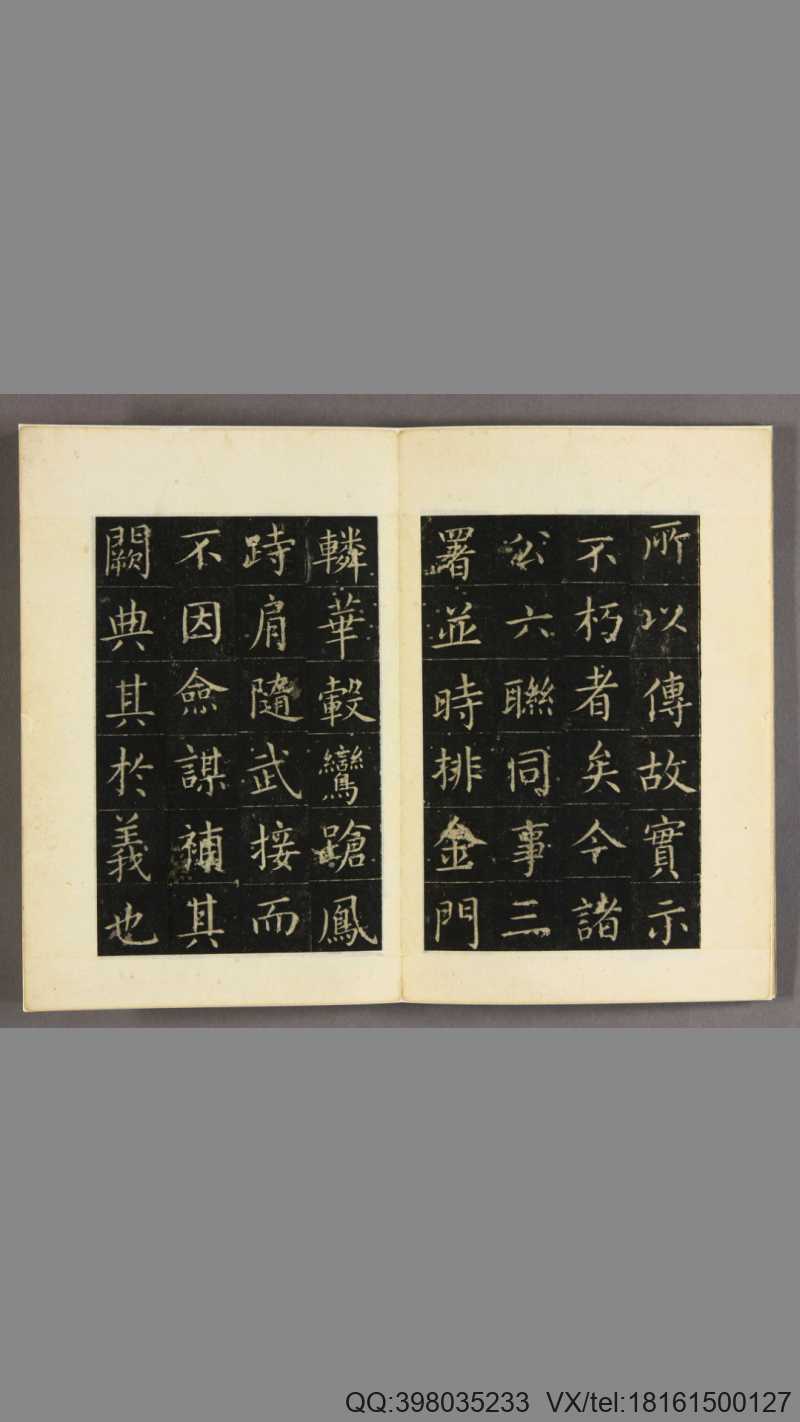 所以傳故實示
不朽者矣今諸
公六聯同事三
署並時排金門
轔華轂鸞蹌鳳
跱肩隨武接而
不因僉謀補其
闕典其於義也
QQ:398035233 VX/tel:18161500127